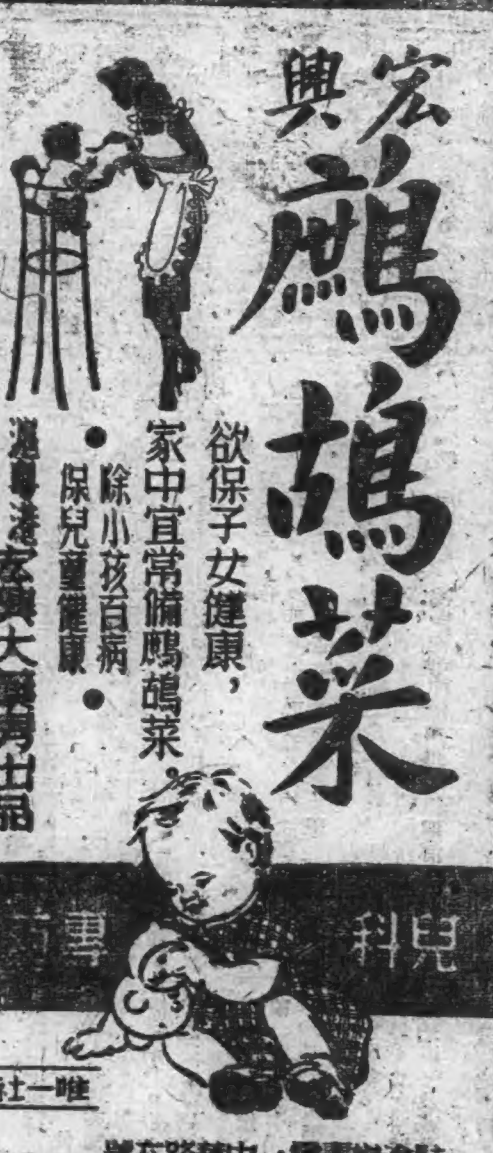 宏興
鷓鴣菜
欲保子女健康，
家中宜常備鷓鴣菜。
●除小孩百病
保兒童健康●
滬粤港宏興大藥房出品
兒科
唯一社